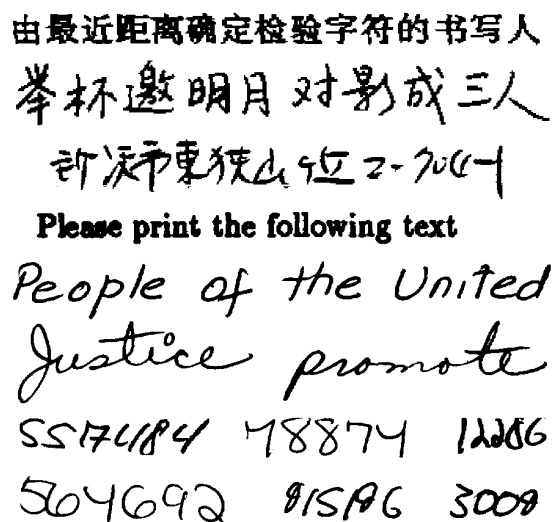 由最近距离确定检验字符的书写人
举杯邀明月对影成三人
東狭山
Please print the following text
People of the United
Justice promote
78874
564692 3008